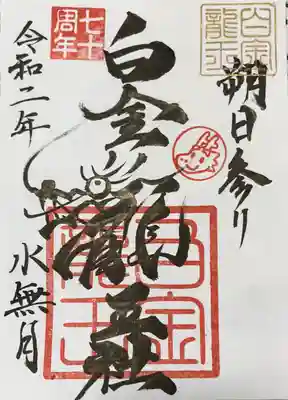 白金
龍王
朔日参り
白金龍王社
白金
龍王
七十
周年
令和二年
水無月